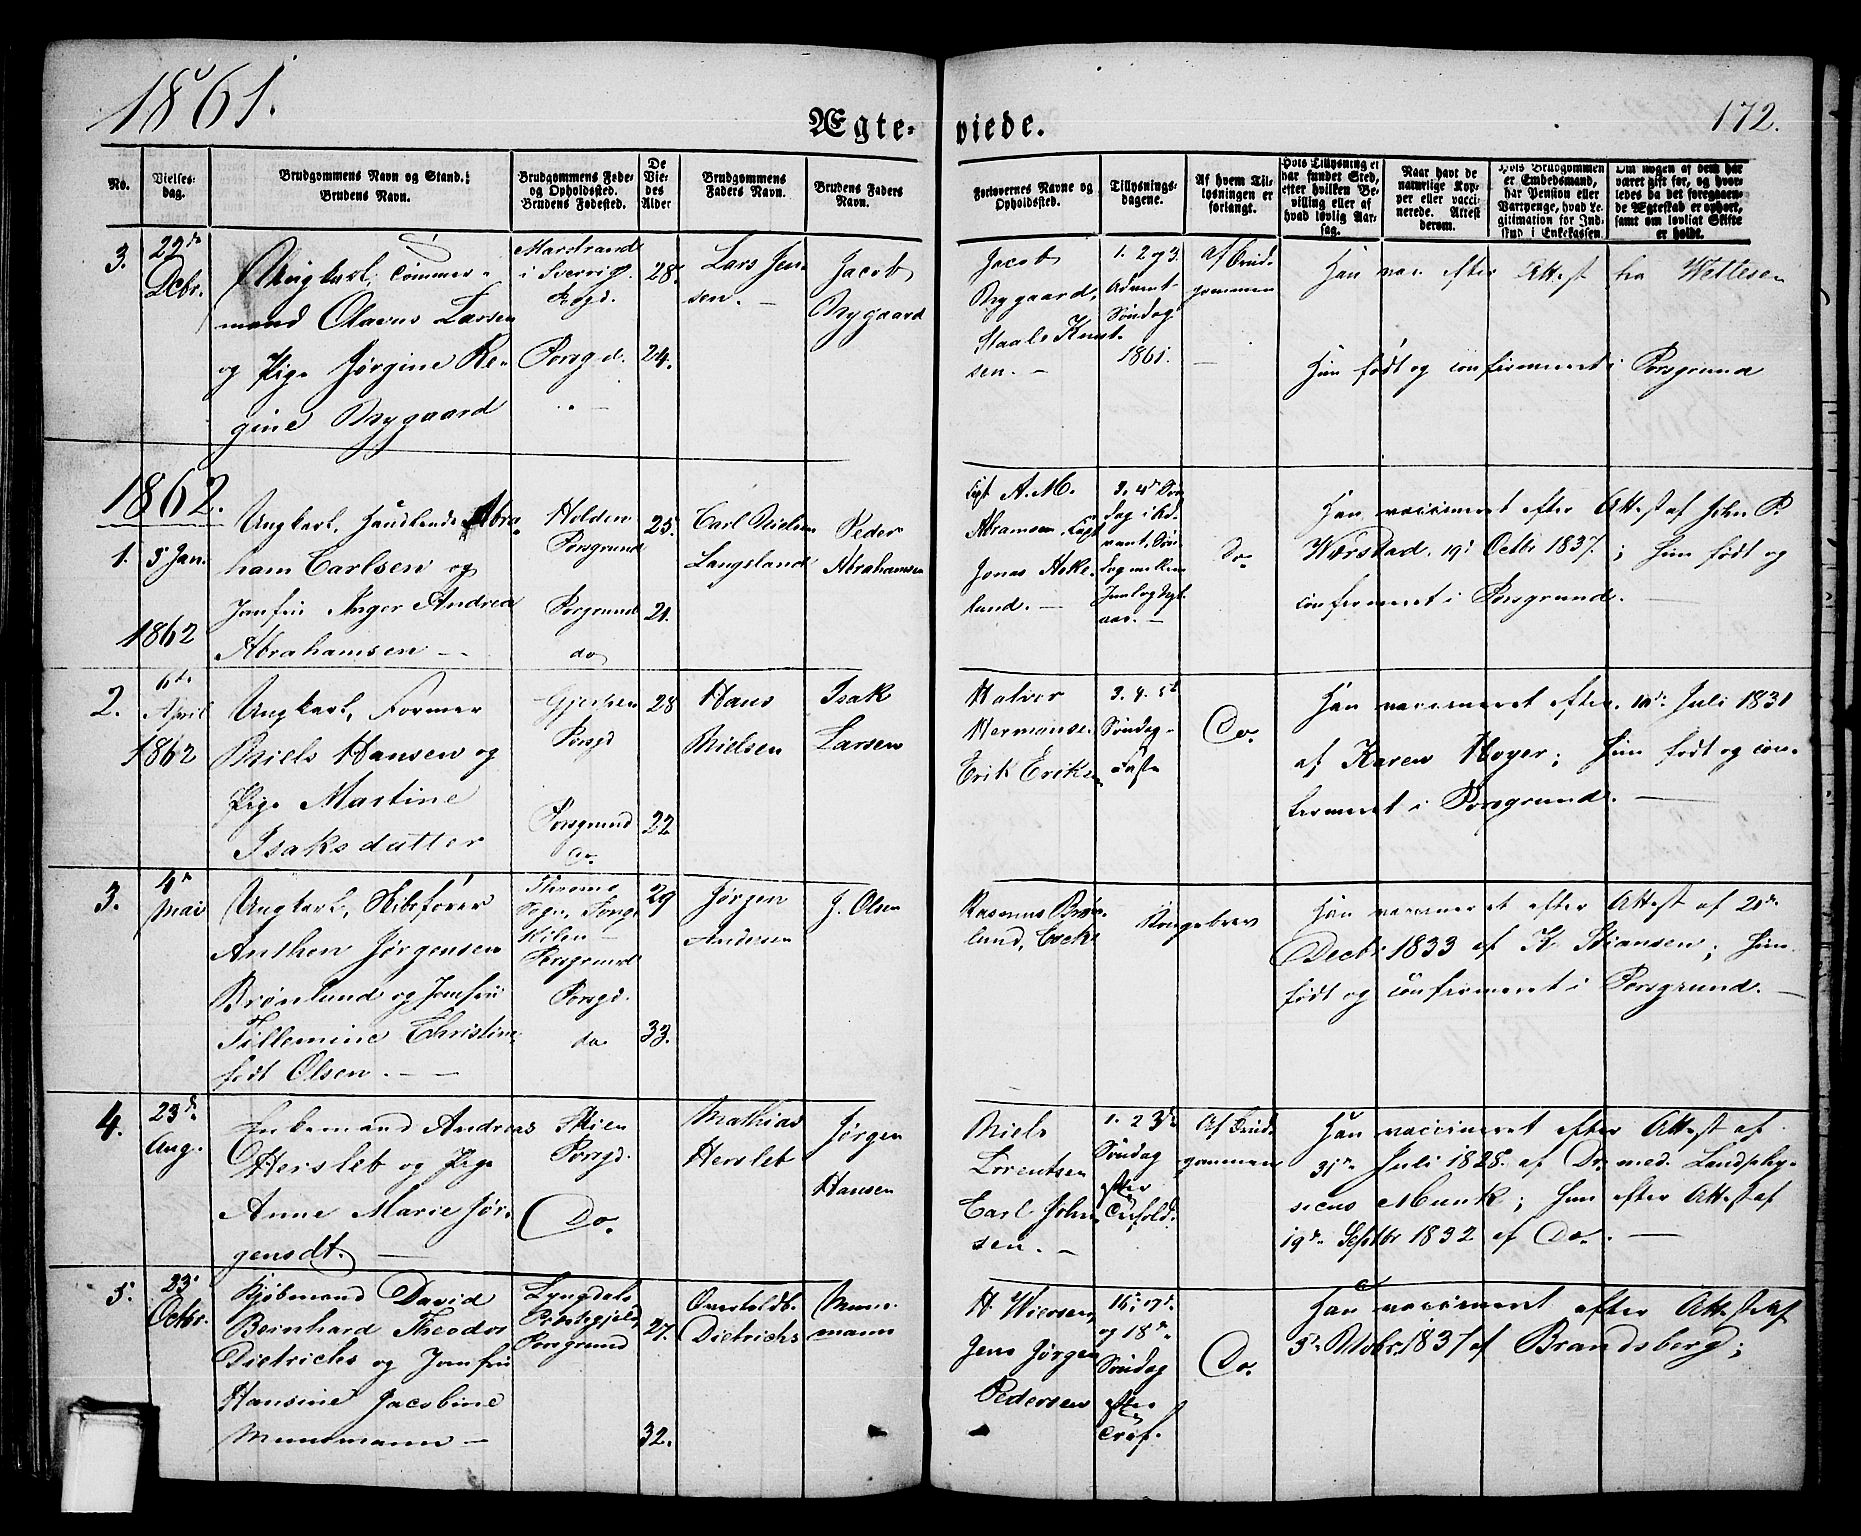 1861.
Ægte-
viede.
172.
No.
Vielses-
dag.
Brudgommens Navn og Stand.
Brudens Navn.
Brudgommens Føde-
og Opholdssted.
Brudens Fødested.
De
Vie-
des
Alder
Brudgommens
Faders Navn.
Brudens Faders
Navn.
Forlovernes Navne og
Opholdssted.
Tillysnings-
dagene.
Af hvem Til-
lysningen er
forlangt.
Hvis Tillysning ei
har fundet Sted,
efter hvilken Be-
villing eller af
hvad lovlig Aar-
sag.
Naar havt de
naturlige Kop-
per eller vacci-
nerede. Attest
derom.
Hvis Brudgommen
er Embedsmand,
har Pension eller
Vartpenge, hvad Le-
gitimation for Ind-
skud i Enkekassen.
Om nogen af dem har
været gift før, og hvor-
ledes da det foregaaen-
de Ægteskab er ophørt,
samt om lovligt Skifte
er holdt.
3.
29de
Debr.
Ungkarl, Tømmer-
mand Olavus Larsen
og Pige Jørgine Re-
gine Nygaard
Marstrand
i Sverrig
Porsgd.
28.
24.
Lars Jen-
sen. -
Jacob
Nygaard
Jacob
Nygaard,
Staale Knut-
sen. -
1. 2 og 3.
Advent
Søndag
1861.
Af Brud-
gommen
Han vac. efter Attest fra
Hun født og confirmeret i Porsgrund
1862.
1.
5 Jan.
1862
Ungkarl, Handlende Abra-
ham Carlsen og
Jomfru Inger Andrea
Abrahamsen -
Holden
Porsgrund
Porsgrund
do
25.
21.
Carl Nielsen
Langeland
Peder
Abrahamsen
Capt A. M.
Abramsen, Capt
Jonas Heke-
lund. -
3. 4de Søn-
dag i Ad-
vent, Søn-
dag mellem
Juul og Nyt-
aar. -
Do.
Han vaccineret efter Attest af John P.
Wærstad, 19de Octbr 1837.; Hun født og
confirmeret i Porsgrund. -
2.
6te
April
1862
Ungkarl, Former
Niels Hansen og
Pige Martine
Isaksdatter
Gjerpen
Porsgd
Porsgrund
do.
28
22
Hans
Nielsen
Isak
Larsen
Halvor
Hermansen
Erik Eriksen
3. 4. 5te
Søndag
i Faste
Do.
Han vaccineret efter Juli 1831
af Karen Hoyer; Hun født og con-
firmeret i Porsgrund. -
3.
4de
Mai
Ungkarl, Skibsfører
Anthon Jørgensen
Brønlund og Jomfru
Tillemine Christine
født Olsen. -
Thromø
Sogn,
Porsgrund
Porsgd.
do
29
33.
Jørgen
Andersen
J. Olsen
Rasmus Brøn-
lund,
Kongebrev
Han vaccineret efter Attest af 21de
Decbr 1833 af K. Stiansen; Hun
født og confirmeret i Porsgrund. -
4.
23de
Aug.
Enkemand Andreas
Hersleb og Pige
Anne Marie Jør-
gensdt. -
Skien
Porsgd.
Do.
Mathias
Hersleb
Jørgen
Hansen
Niels
Lorentsen
Carl John-
sen. -
1. 2 3de
Søndag
efter
Trefold.
Af Brud-
gommen
Han vaccineret efter Attest af
31de Juli 1828 af Dr. med. Landphy-
sicus Munk; Hun efter Attest af
19de Septbr 1832 af Do. -
5.
23de
Octbr.
Kjøbmand David
Bernhard Theodor
Dietrichs og Jomfru
Hansine Jacobine
Munsmann -
Lyngdals
Præstegjeld,
Porsgrund
27.
32.
Dietrichs
Muns-
mann
H. Wiersen,
Jens Jørgen
Pedersen
16. 17de
og 18de
Søndag
efter
Tref.
Do.
Han vaccineret efter Attest af
5te Novbr. 1837 af Brandsberg;